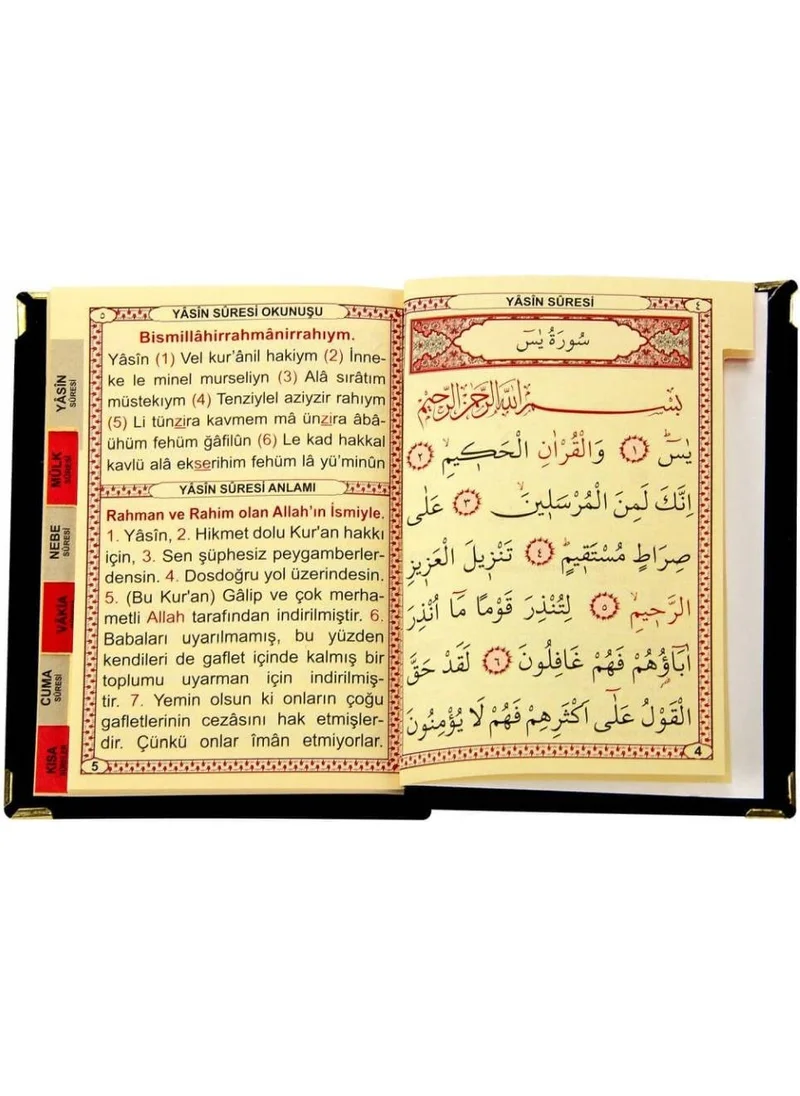 YÂSÎN SÛRESİ
٤
سُورَةُ يٰسٓ
بِسْمِ اللّٰهِ الرَّحْمٰنِ الرَّحِيمِ
يٰسٓ ﴿١﴾ وَالْقُرْاٰنِ الْحَكِيمِۙ ﴿٢﴾
اِنَّكَ لَمِنَ الْمُرْسَلِينَۙ ﴿٣﴾ عَلٰى
صِرَاطٍ مُسْتَقِيمٍۜ ﴿٤﴾ تَنْزِيلَ الْعَزِيزِ
الرَّحِيمِۙ ﴿٥﴾ لِتُنْذِرَ قَوْمًا مَٓا اُنْذِرَ
اٰبَٓاؤُ۬هُمْ فَهُمْ غَافِلُونَ ﴿٦﴾ لَقَدْ حَقَّ
الْقَوْلُ عَلٰٓى اَكْثَرِهِمْ فَهُمْ لَا يُؤْمِنُونَ
4
٥
YÂSÎN SÛRESİ OKUNUŞU
Bismillâhirrahmânirrahıym.
Yâsîn (1) Vel kur’ânil hakiym (2) İnne-
ke le minel murseliyn (3) Alâ sırâtım
müstekıym (4) Tenziylel aziyzir rahıym
(5) Li tünzira kavmem mâ ünzira âbâ-
ühüm fehüm gâfilûn (6) Le kad hakkal
kavlü alâ ekserihim fehüm lâ yü’minûn
YÂSÎN SÛRESİ ANLAMI
Rahman ve Rahim olan Allah’ın İsmiyle.
1. Yâsîn, 2. Hikmet dolu Kur'an hakkı
için, 3. Sen şüphesiz peygamberler-
densin. 4. Dosdoğru yol üzerindesin.
5. (Bu Kur'an) Gâlip ve çok merha-
metli Allah tarafından indirilmiştir. 6.
Babaları uyarılmamış, bu yüzden
kendileri de gaflet içinde kalmış bir
toplumu uyarman için indirilmiş-
tir. 7. Yemin olsun ki onların çoğu
gafletlerinin cezâsını hak etmişler-
dir. Çünkü onlar îmân etmiyorlar.
5
YÂSÎN
SÛRESİ
MÜLK
SÛRESİ
NEBE
SÛRESİ
VÂKIA
CUMA
SÛRESİ
KISA